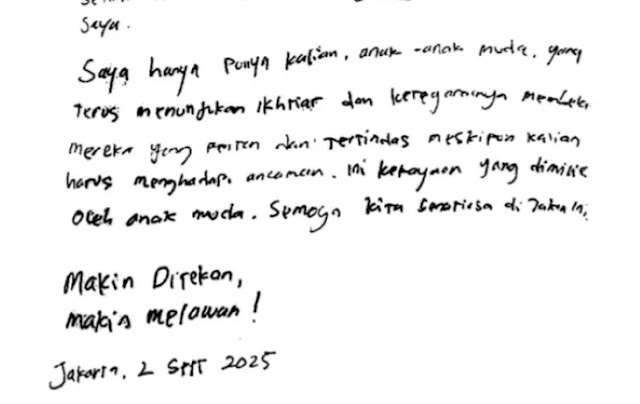 Saya.
Saya hanya punya kalian, anak-anak muda, yang
terus menunjukan ikhtiar dan membela
mereka yang dan tertindas meskipun kalian
harus menghadapi ancaman. Ini kekayaan yang dimiliki
oleh anak muda. Semoga kita senatiasa di Jalan ini,
Makin Direkan,
makin melawan!
Jakarta, 2 SEPT 2025